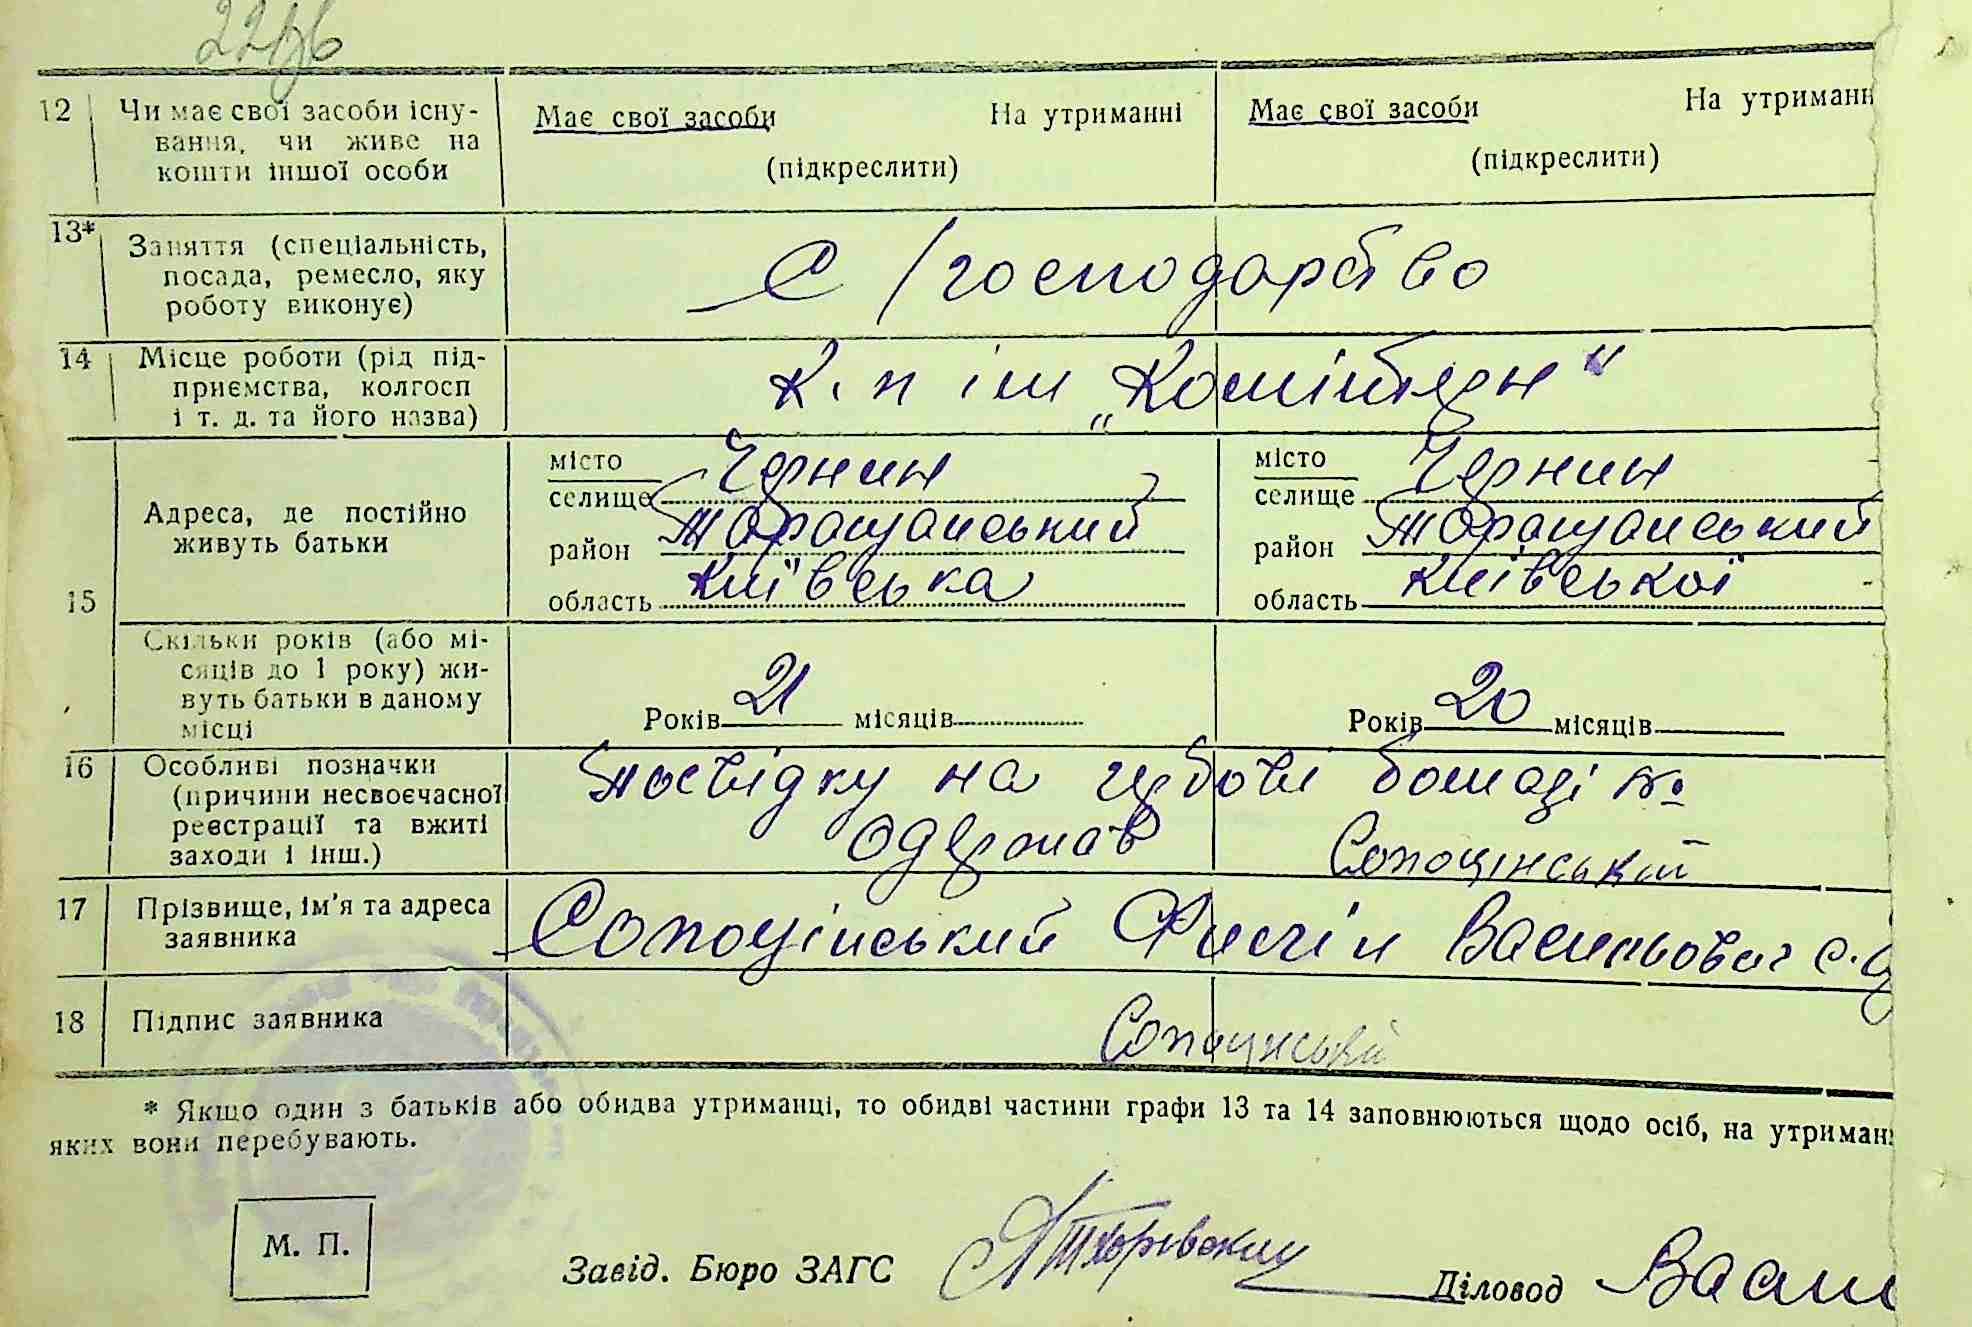 12 Чи має свої засоби існу-
вання, чи живе на
кошти іншої особи
Має свої засоби На утриманні
(підкреслити)
Має свої засоби На утриманн
(підкреслити)
13* Заняття (спеціальність,
посада, ремесло, яку
роботу виконує)
С/господарство
14 Місце роботи (рід під-
приємства, колгосп
і т. д. та його назва)
к. п ім „Комінтерн"
15
Адреса, де постійно
живуть батьки
місто
селище Чернин
район Таращанський
область Київська
місто
селище Чернин
район Таращанський
область Київської
Скільки років (або мі-
сяців до 1 року) жи-
вуть батьки в даному
місці
Років 21 місяців
Років 20 місяців
16 Особливі позначки
(причини несвоєчасної
реєстрації та вжиті
заходи і інш.)
Посвідку на бомазі №
одержав Сопоцінський
17 Прізвище, ім'я та адреса
заявника
Сопоцінський Васильович с.
18 Підпис заявника
Сопоцнський
* Якщо один з батьків або обидва утриманці, то обидві частини графи 13 та 14 заповнюються щодо осіб, на утриман
яких вони перебувають.
М. П.
Завід. Бюро ЗАГС
Діловод